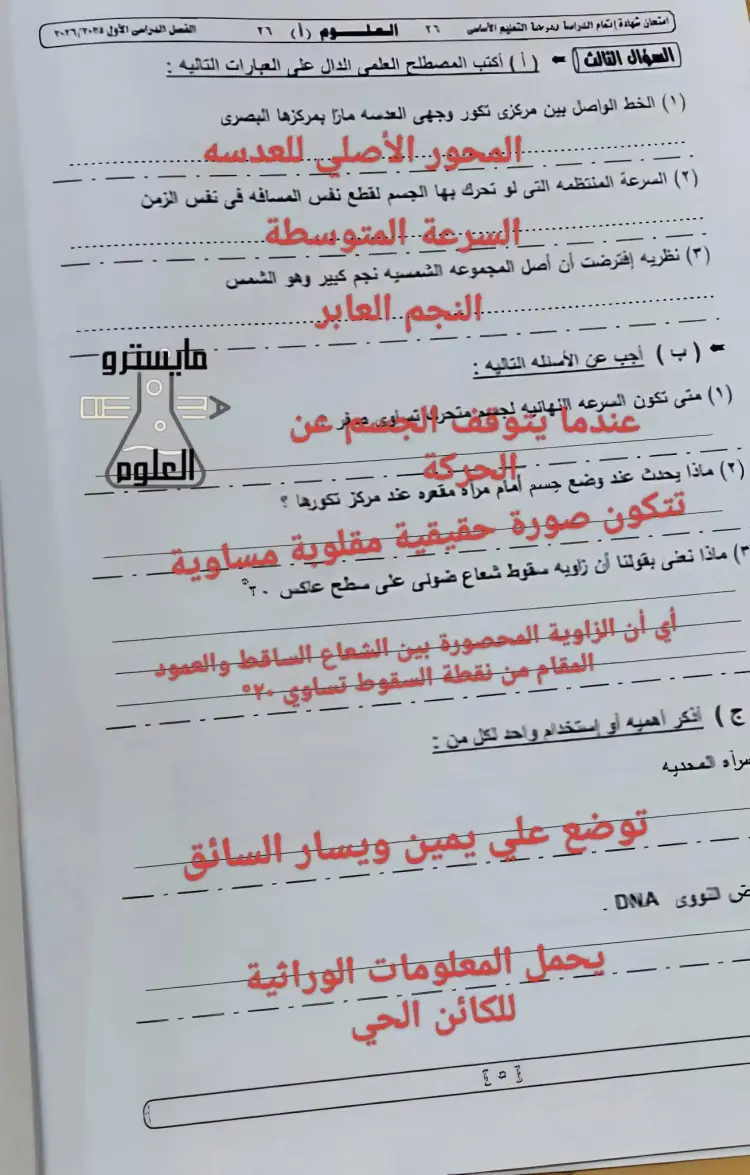 امتحان شهادة إتمام الدراسة بمرحلة التعليم الأساسى ٢٦ العلـــوم (أ) ٢٦ الفصل الدراسى الأول ٢٠٢٦/٢٠٢٥
السؤال الثالث (أ) أكتب المصطلح العلمى الدال على العبارات التاليه :
(١) الخط الواصل بين مركزى تكور وجهى العدسه مارًا بمركزها البصرى
المحور الأصلي للعدسه
(٢) السرعة المنتظمه التى لو تحرك بها الجسم لقطع نفس المسافه فى نفس الزمن
السرعة المتوسطة
(٣) نظريه إفترضت أن أصل المجموعه الشمسيه نجم كبير وهو الشمس
النجم العابر
مايسترو
العلوم
(ب) أجب عن الأسئله التاليه :
(١) متى تكون السرعه النهائيه لجسم متحرك تساوى صفر
عندما يتوقف الجسم عن
الحركة
(٢) ماذا يحدث عند وضع جسم أمام مرآه مقعره عند مركز تكورها ؟
تتكون صورة حقيقية مقلوبة مساوية
٣) ماذا نعنى بقولنا أن زاويه سقوط شعاع ضوئى على سطح عاكس ٢٠°
أي أن الزاوية المحصورة بين الشعاع الساقط والعمود
المقام من نقطة السقوط تساوي ٢٠°
ج) أذكر أهميه أو إستخدام واحد لكل من :
مرآه المحدبه
توضع علي يمين ويسار السائق
ض النووى DNA .
يحمل المعلومات الوراثية
للكائن الحي
{ ٥ }